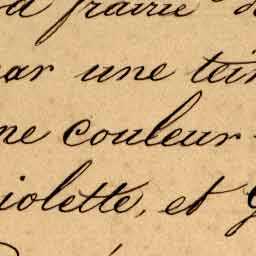 la prairie
par une tein
ne couleur
iolette, et